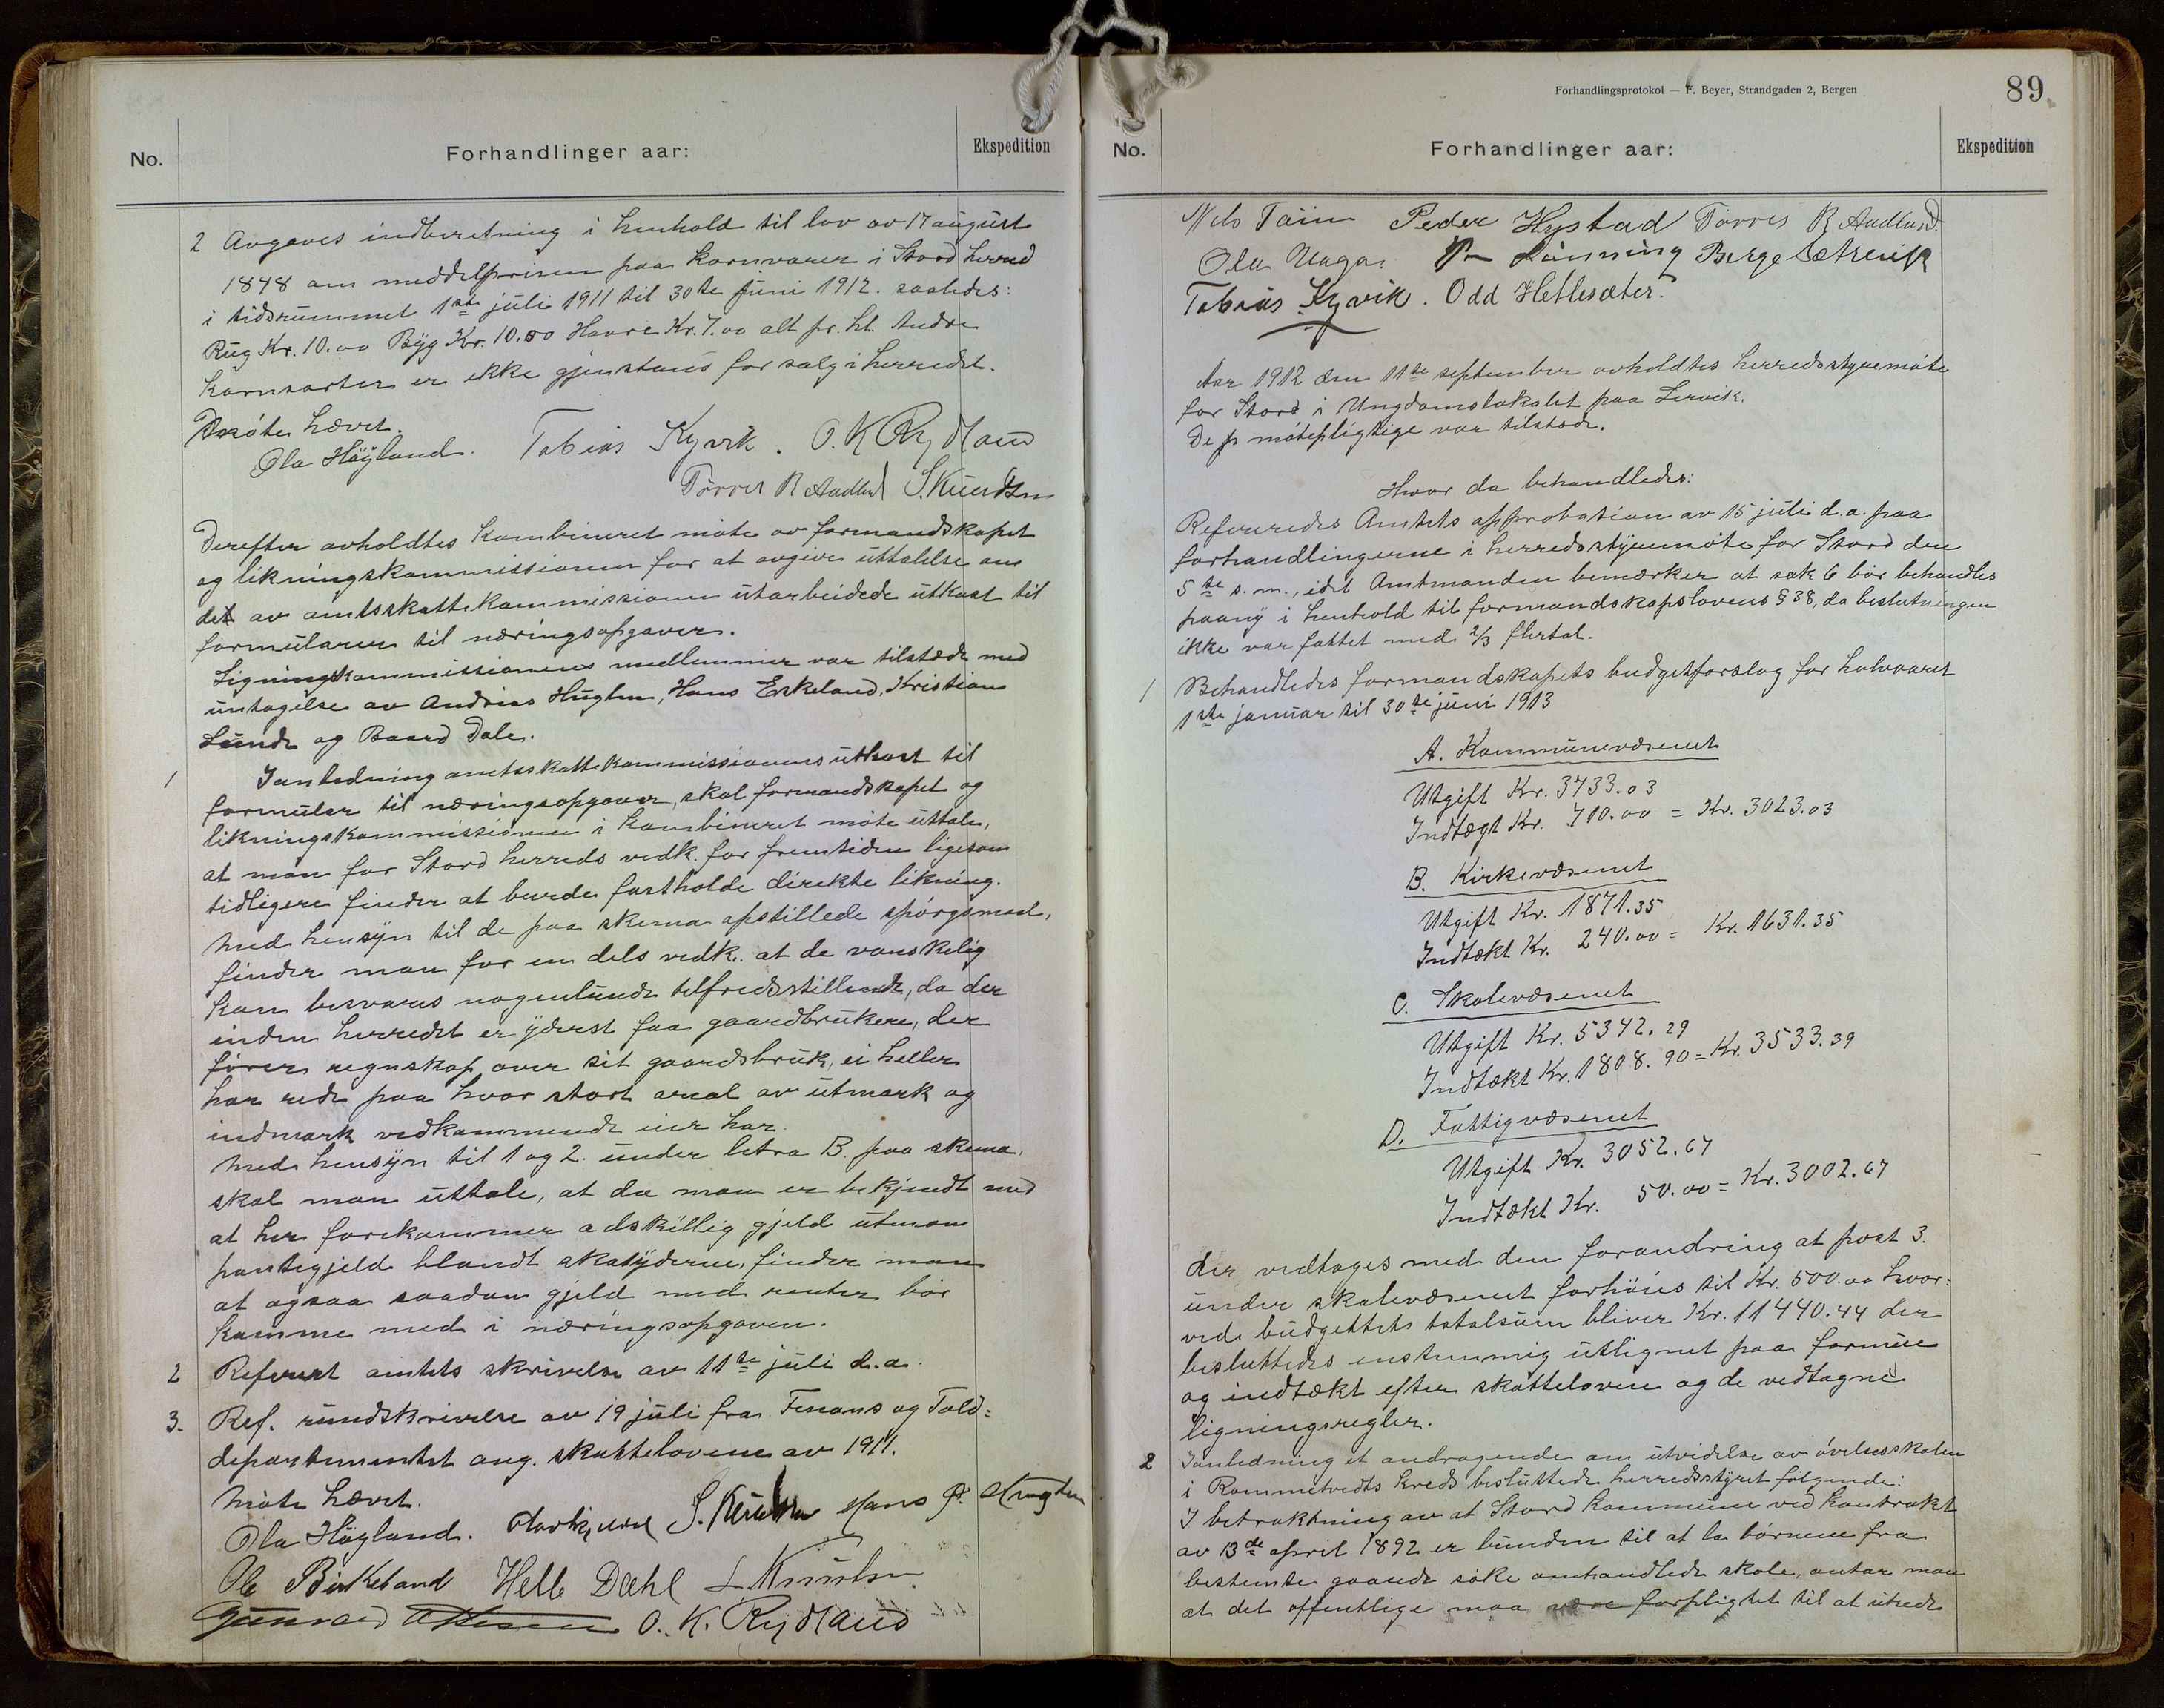 No.
Forhandlinger aar:
Ekspedition
2 Avgaves indberetning i henhold til lov av 17 august
1848 om middelprisen paa kornvarer i Stord herred
i tidsrummet 1ste juli 1911 til 30te juni 1912. saaledes:
Rug Kr. 10.00 Byg Kr. 10.00 Havre Kr. 7.00 alt pr. hl. Andre
kornsorter er ikke gjenstand for salg i herredet.
Møte hævet.
Ola Høyland. Tobias Kyvik. O. K. Rydland
Tørres R Aadland S. Knudsen
Derefter avholdtes kombineret møte av formandskapet
og likningskommissionen for at avgive uttalelse om
det av amtsskattekommissionen utarbeidede utkast til
formularer til næringsopgaver.
Ligningskommissionens medlemmer var tilstede med
untagelse av Andreas Huglen, Hans Eskeland, Kristian
Lunde og Baard Dale.
1 I anledning amtsskattekommissionens utkast til
formular til næringsopgaver, skal formandskapet og
likningskommissionen i kombineret møte uttale,
at man for Stord herreds vedk. for fremtiden ligesom
tidligere finder at burde fastholde direkte likning.
Med hensyn til de paa skema opstillede spørgsmaal,
finder man for en dels vedk. at de vanskelig
kan besvares nogenlunde tilfredsstillende, da der
inden herredet er yderst faa gaardbrukere, der
fører regnskap over sit gaardsbruk, ei heller
har rede paa hvor stort areal av utmark og
indmark vedkommende eier har.
Med hensyn til 1 og 2. under litra B. paa skema,
skal man uttale, at da man er bekjendt med
at her forekommer adskillig gjeld utenom
pantegjeld blandt skatyderne, finder man
at ogsaa saadan gjeld med renter bør
komme med i næringsopgaven.
2 Referert amtets skrivelse av 11te juli d.a.
3. Ref. rundskrivelse av 19 juli fra Finans og Told=
departementet ang. skattelovene av 1911.
Møte hævet.
Ola Høyland. S. Knudsen Hans
Ole Birkeland Helle Dahl L Knutsen
Gunvald O. K. Rydland
Forhandlingsprotokol — F. Beyer, Strandgaden 2, Bergen
89
No.
Forhandlinger aar:
Ekspedition
Nils Tøien Peder Hystad Tørres R Aadland.
Ola Rønning Berge Sætrevik
Tobias Kyvik. Odd Hetlesæter.
Aar 1912 den 11te september avholdtes herredsstyremøte
for Stord i Ungdomslokalet paa Lervik.
De møtepligtige var tilstede.
Hvor da behandledes:
Refereredes Amtets approbation av 15 juli d.a. paa
forhandlingerne i herredsstyremøte for Stord den
5te s.m., idet Amtmanden bemærker at sak 6 bør behandles
paany i henhold til formandskapslovens § 38, da beslutningen
ikke var fattet med 2/3 flertal.
1 Behandledes formandskapets budgetforslag for halvaaret
1ste januar til 30te juni 1913
A. Kommunevæsenet
Utgift Kr. 3733.03
Indtægt Kr. 710.00 = Kr. 3023.03
B. Kirkevæsenet
Utgift Kr. 1871.35
Indtækt Kr. 240.00 = Kr. 1631.35
C. Skolevæsenet
Utgift Kr. 5342.29
Indtækt Kr. 1808.90 = Kr. 3533.39
D. Fattigvæsenet
Utgift Kr. 3052.67
Indtækt Kr. 50.00 = Kr. 3002.67
der vedtages med den forandring at post 3.
under skolevæsenet forhøies til Kr. 500.00 hvor=
ved budgettets totalsum bliver Kr. 11440.44 der
besluttedes enstemmig utlignet paa formue
og indtækt efter skatteloven og de vedtagne
ligningsregler.
2 I anledning et andragende om utvidelse av øvelsesskolen
i Rommetvedts kreds besluttede herredsstyret følgende:
I betraktning av at Stord kommune ved kontrakt
av 13de april 1892 er bunden til at la børnene fra
bestemte gaarde søke omhandlede skole, antar man
at det offentlige maa være forpligtet til at utrede